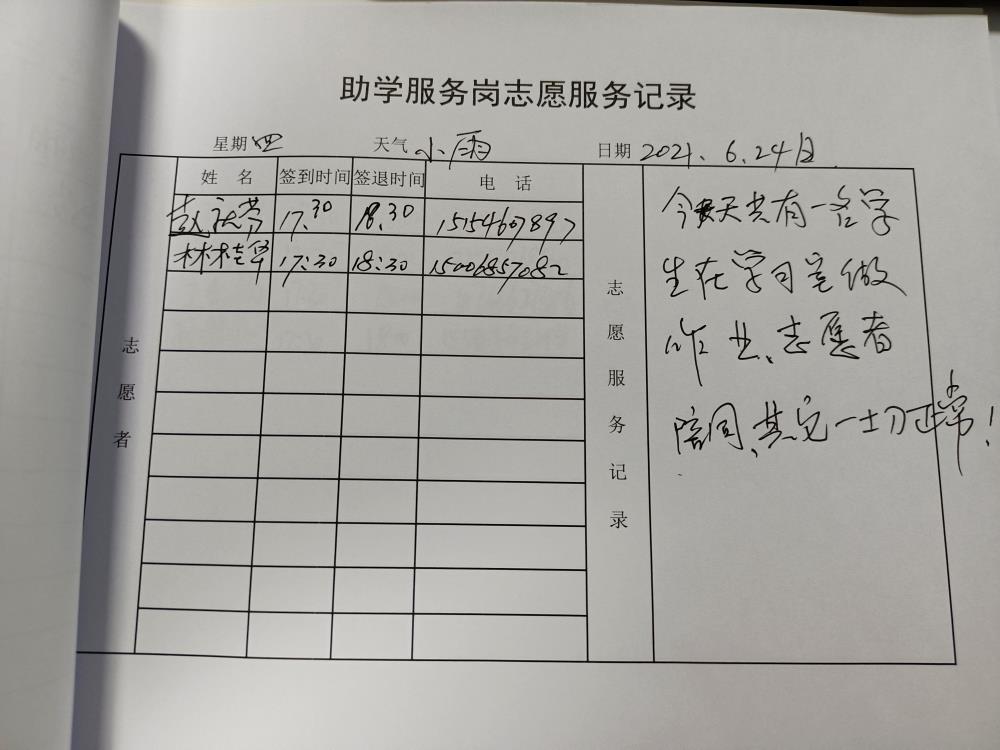 助学服务岗志愿服务记录
星期 四 天气 小雨 日期 2021. 6.24日
姓 名 签到时间 签退时间 电 话
赵 17.30 18.30 15154607897
林桂华 17:30 18:30 15006857082
志愿者
志愿服务记录
今天共有一名学
生在学习室做
作业、志愿者
陪同、其它一切正常!